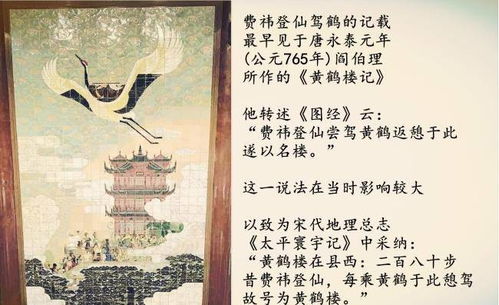 费祎登仙驾鹤的记载
最早见于唐永泰元年
(公元765年)阎伯理
所作的《黄鹤楼记》
他转述《图经》云：
“费祎登仙尝驾黄鹤返憩于此
遂以名楼。”
这一说法在当时影响较大
以致为宋代地理总志
《太平寰宇记》中采纳：
“黄鹤楼在县西：二百八十步
昔费祎登仙，每乘黄鹤于此憩驾
故号为黄鹤楼。”